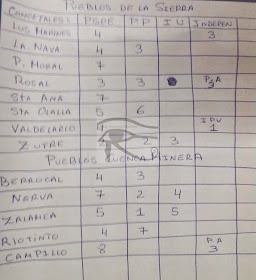 PUEBLOS DE LA SIERRA
CONCEJALES PSOE PP IU INDEPEN
LOS MARINES 4 3
LA NAVA 4 3
P. MORAL 7
ROSAL 3 3 PA 3
STA ANA 7
STA OLALLA 5 6
VALDELARCO 4 IPV 1
ZUFRE 2 3
PUEBLOS CUENCA MINERA
BERROCAL 4 3
NERVA 7 2 4
ZALAMEA 5 1 5
RIOTINTO 4 7
CAMPILLO 8 PA 3